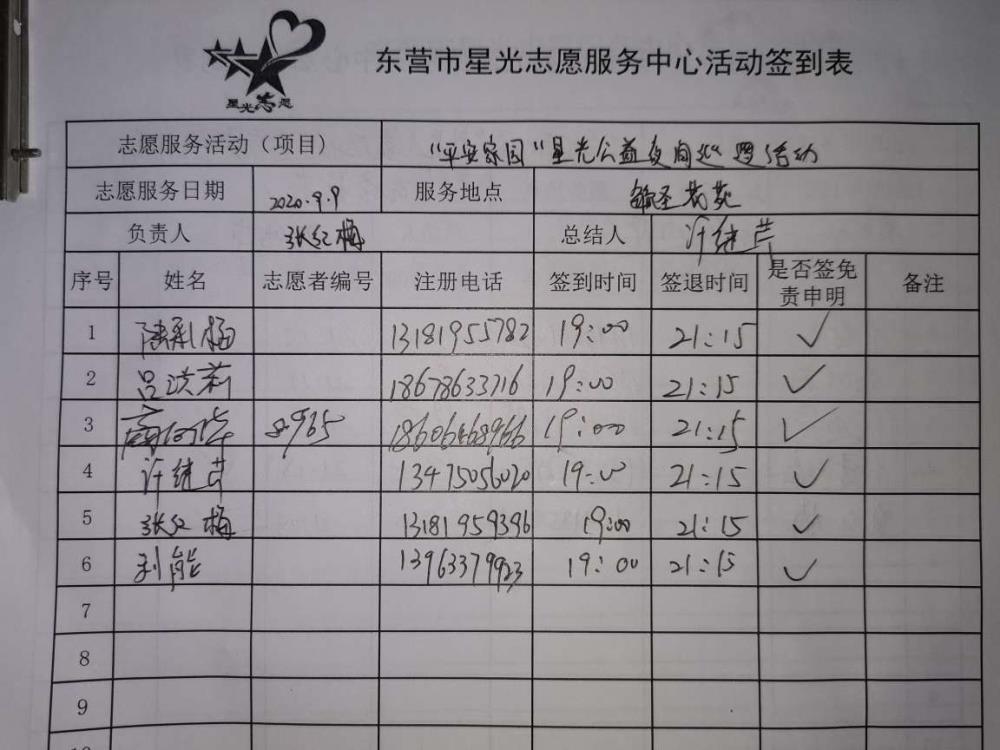 星光志愿
东营市星光志愿服务中心活动签到表
志愿服务活动（项目） "平安家园"星光公益夜间巡逻活动
志愿服务日期 2020.9.9 服务地点 苑
负责人 张红梅 总结人 许继芳
序号 姓名 志愿者编号 注册电话 签到时间 签退时间 是否签免责申明 备注
1 13181955782 19:00 21:15 ✓
2 吕洪莉 18678633716 19:00 21:15 ✓
3 18606468966 19:00 21:15 ✓
4 许继芳 13475056020 19:00 21:15 ✓
5 张红梅 13181959396 19:00 21:15 ✓
6 刘能 13963379923 19:00 21:15 ✓
7
8
9